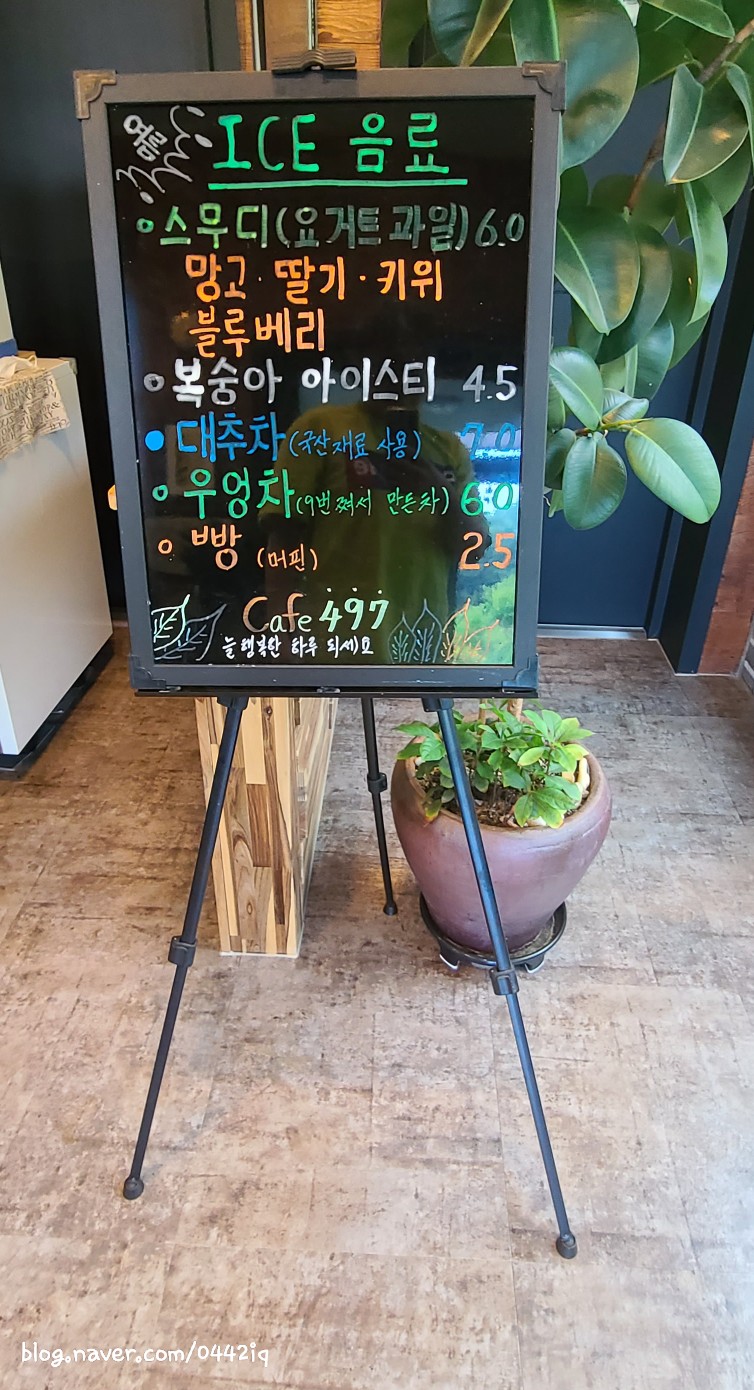 여름
ICE 음료
스무디(요거트 과일) 6.0
망고·딸기·키위
블루베리
복숭아 아이스티 4.5
대추차(국산재료 사용) 7.0
우엉차(9번쪄서 만든차) 6.0
빵 (머핀) 2.5
Cafe 497
늘 행복한 하루 되세요
blog.naver.com/0442iq